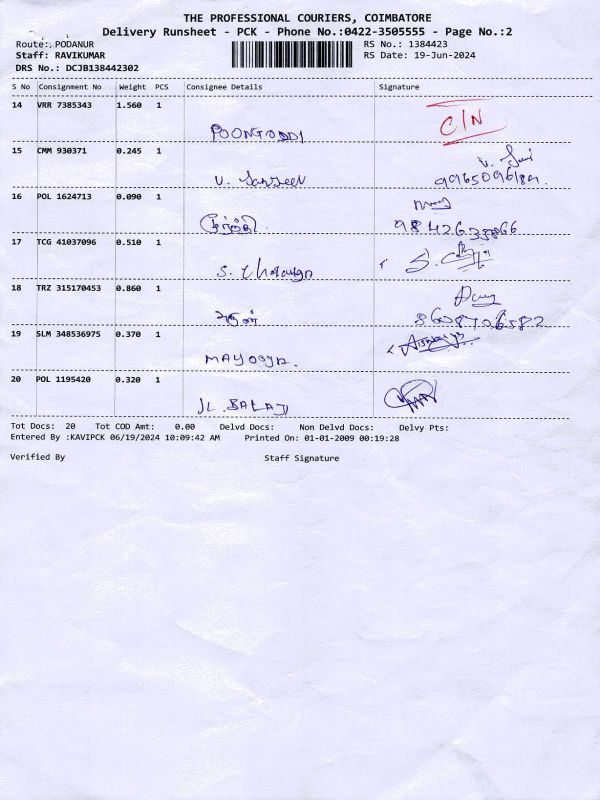 THE PROFESSIONAL COURIERS, COIMBATORE
Delivery Runsheet - PCK - Phone No.:0422-3505555 - Page No.:2
Route: PODANUR RS No.: 1384423
Staff: RAVIKUMAR RS Date: 19-Jun-2024
DRS No.: DCJB138442302
S No Consignment No Weight PCS Consignee Details Signature
14 VRR 7385343 1.560 1
C/N
15 CMM 930371 0.245 1
V. Sanjeev
16 POL 1624713 0.090 1
17 TCG 41037096 0.510 1
18 TRZ 315170453 0.860 1
அருண்
8608706582
19 SLM 348536975 0.370 1
MAYOOJA.
20 POL 1195420 0.320 1
JL. BALAJI
Tot Docs: 20 Tot COD Amt: 0.00 Delvd Docs: Non Delvd Docs: Delvy Pts:
Entered By :KAVIPCK 06/19/2024 10:09:42 AM Printed On: 01-01-2009 00:19:28
Verified By Staff Signature